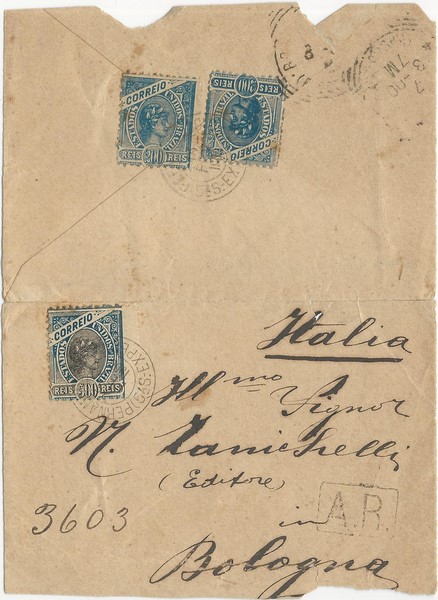 CORREIO
ESTADOS UNIDOS BRAZIL
REIS 200 REIS
CORREIO
ESTADOS UNIDOS BRAZIL
REIS 200 REIS
CORREIO
ESTADOS UNIDOS BRAZIL
REIS 500 REIS
Italia
Ill.mo
Signor
N. Zanichelli
(Editore)
3603
in
A.R.
Bologna